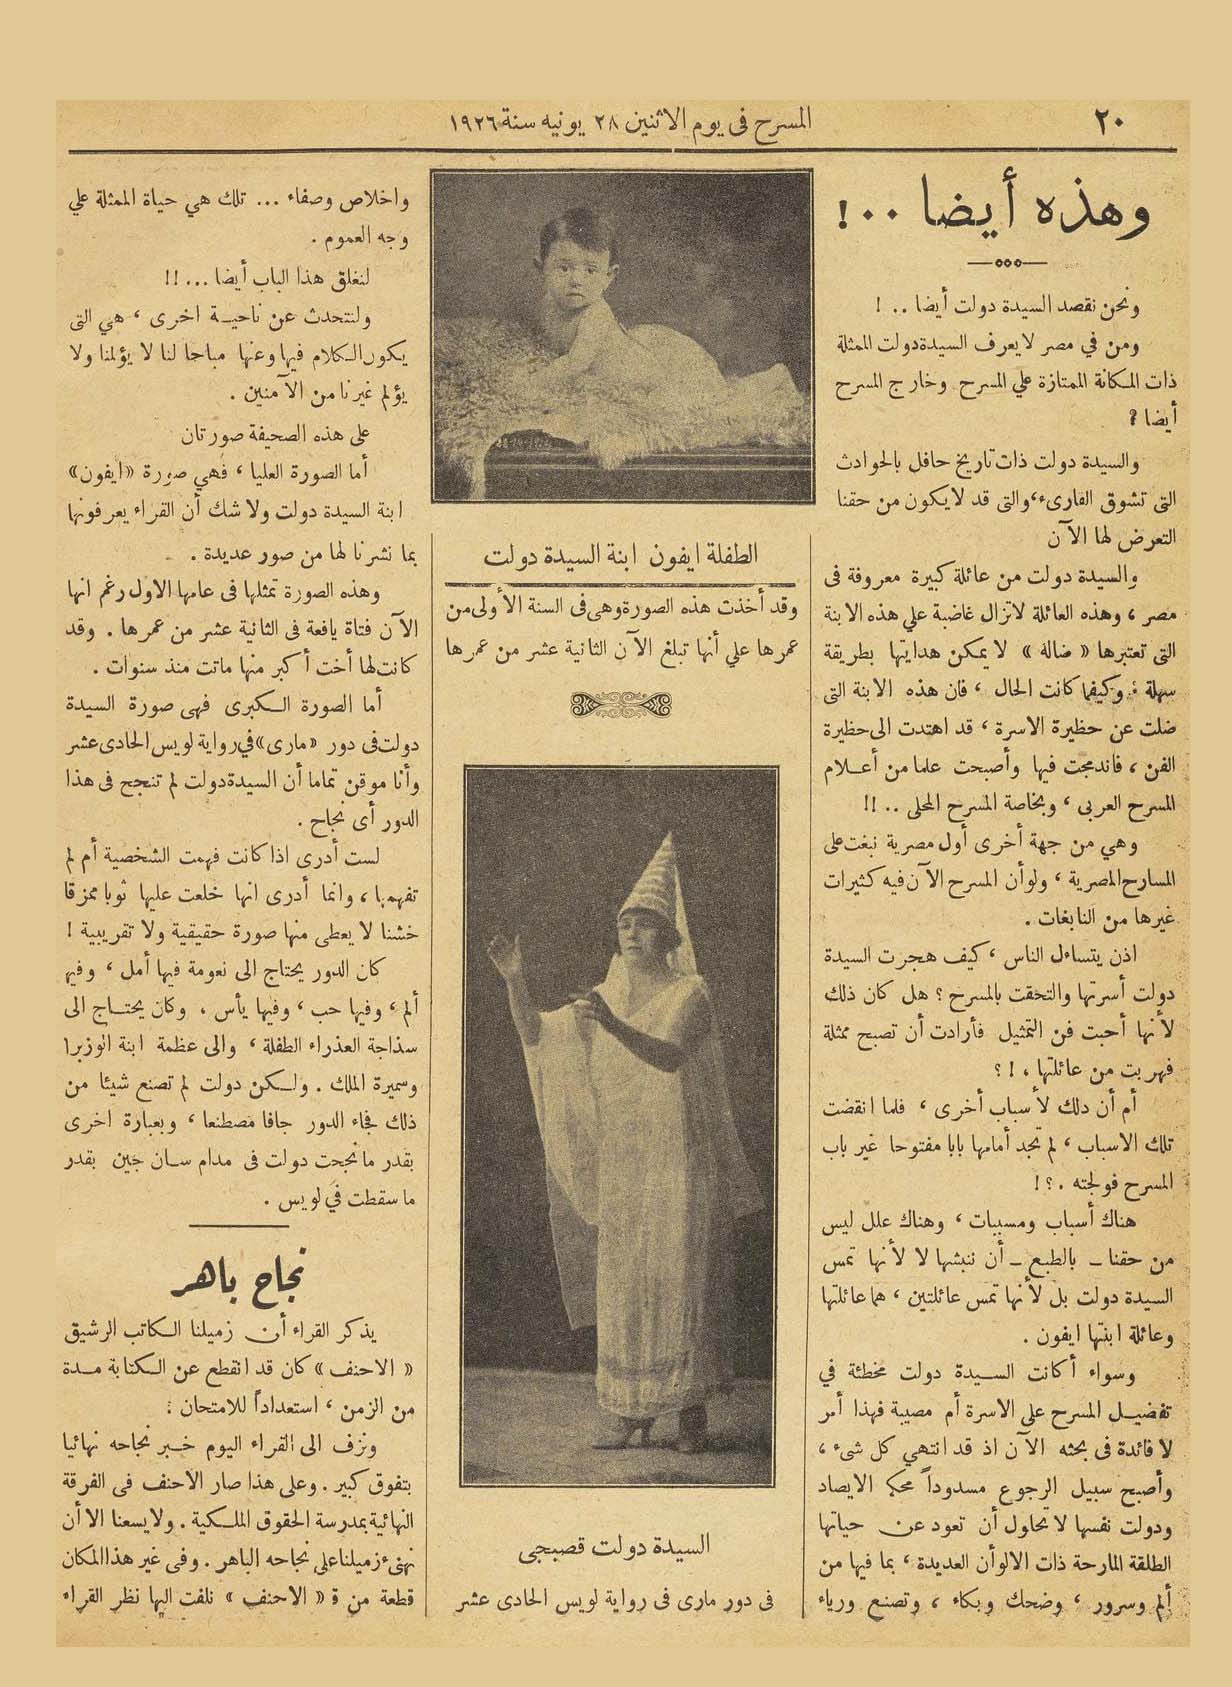 ٢٠
المسرح فى يوم الاثنين ٢٨ يونيه سنة ١٩٢٦
وهذه أيضا ٠٠!
ونحن نقصد السيدة دولت أيضا ..!
ومن في مصر لا يعرف السيدة دولت الممثلة
ذات المكانة الممتازة علي المسرح وخارج المسرح
أيضا ؟
والسيدة دولت ذات تاريخ حافل بالحوادث
التى تشوق القارىء، والتى قد لا يكون من حقنا
التعرض لها الآن
والسيدة دولت من عائلة كبيرة معروفة فى
مصر ، وهذه العائلة لاتزال غاضبة علي هذه الابنة
التى تعتبرها « ضالة » لا يمكن هدايتها بطريقة
سهلة : وكيفما كانت الحال ، فان هذه الابنة التى
ضلت عن حظيرة الاسرة ، قد اهتدت الى حظيرة
الفن ، فاندمجت فيها وأصبحت علما من أعـلام
المسرح العربى ، وبخاصة المسرح المحلى ..!!
وهي من جهة أخرى أول مصرية نبغت على
المسارح المصرية ، ولو أن المسرح الآن فيه كثيرات
غيرها من النابغات .
اذن يتساءل الناس ، كيف هجرت السيدة
دولت أسرتها والتحقت بالمسرح ؟ هل كان ذلك
لأنها أحبت فن التمثيل فأرادت أن تصبح ممثلة
فهربت من عائلتها ، ! ؟
أم أن دلك لأسباب أخرى ، فلما انقضت
تلك الاسباب ، لم تجد أمامها بابا مفتوحا غير باب
المسرح فولجته .؟!
هناك أسباب ومسببات ، وهناك علل ليس
من حقنا ـ بالطبع ـ أن ننبشها لا لأنها تمس
السيدة دولت بل لأنها تمس عائلتين ، هما عائلتها
وعائلة ابنتها ايفون .
وسواء أكانت السـيدة دولت مخطئة في
تفضيـل المسرح على الاسرة أم مصيبة فهذا أمر
لا فائدة فى بحثه الآن اذ قد انتهي كل شىء ،
وأصبح سبيل الرجوع مسدوداً محكم الايصاد
ودولت نفسها لا تحاول أن تعود عن حياتها
الطلقة المارحة ذات الالوان العديدة ، بما فيها من
ألم وسرور ، وضحك وبكاء ، وتصنع ورياء
الطفلة ايفون ابنة السيدة دولت
وقد أخذت هذه الصورة وهى فى السنة الأولى من
عمرها علي أنها تبلغ الآن الثانية عشر من عمرها
السيدة دولت قصبجى
فى دور مارى فى رواية لويس الحادى عشر
واخلاص وصفاء ... تلك هي حياة الممثلة علي
وجه العموم .
لنغلق هذا الباب أيضا ...!!
ولنتحدث عن ناحيـة اخرى ، هي التى
يكون الكلام فيها وعنها مباحا لنا لا يؤلمنا ولا
يؤلم غيرنا من الآمنين .
على هذه الصحيفة صورتان
أما الصورة العليا ، فهي صورة « ايفون»
ابنة السيدة دولت ولا شك أن القراء يعرفونها
بما نشرنا لها من صور عديدة .
وهذه الصورة تمثلها فى عامها الاول رغم انها
الآن فتاة يافعة فى الثانية عشر من عمرها . وقد
كانت لها أخت أكبر منها ماتت منذ سنوات .
أما الصورة الكبرى فهى صورة السيدة
دولت فى دور «مارى» في رواية لويس الحادى عشر
وأنا موقن تماما أن السيدة دولت لم تنجح فى هذا
الدور أى نجاح .
لست أدرى اذا كانت فهمت الشخصية أم لم
تفهمها ، وانما أدرى انها خلعت عليها ثوبا ممزقا
خشنا لا يعطى منها صورة حقيقية ولا تقريبية !
كان الدور يحتاج الى نعومة فيها أمل ، وفيها
ألم ، وفيها حب ، وفيها يأس ، وكان يحتـاج الى
سذاجة العذراء الطفلة ، والى عظمة ابنة الوزير
وسميرة الملك . ولـكن دولت لم تصنع شيئا من
ذلك فجاء الدور جافا مصطنعا ، وبعبارة اخرى
بقدر ما نجحت دولت فى مدام سـان جين بقدر
ما سقطت في لويس .
نجاح باهر
يذكر القراء أن زميلنا الكاتب الرشيق
« الاحنف » كان قد انقطع عن الكتابة مـدة
من الزمن ، استعداداً للامتحان :
ونزف الى القراء اليوم خـبر نجاحه نهائيا
بتفوق كبير . وعلى هذا صار الاحنف فى الفرقة
النهائية بمدرسة الحقوق الملكية . ولا يسعنا الا أن
نهنىء زميلنا على نجاحه الباهر . وفى غير هذا المكان
قطعة من « الاحنف » نلفت اليها نظر القراء